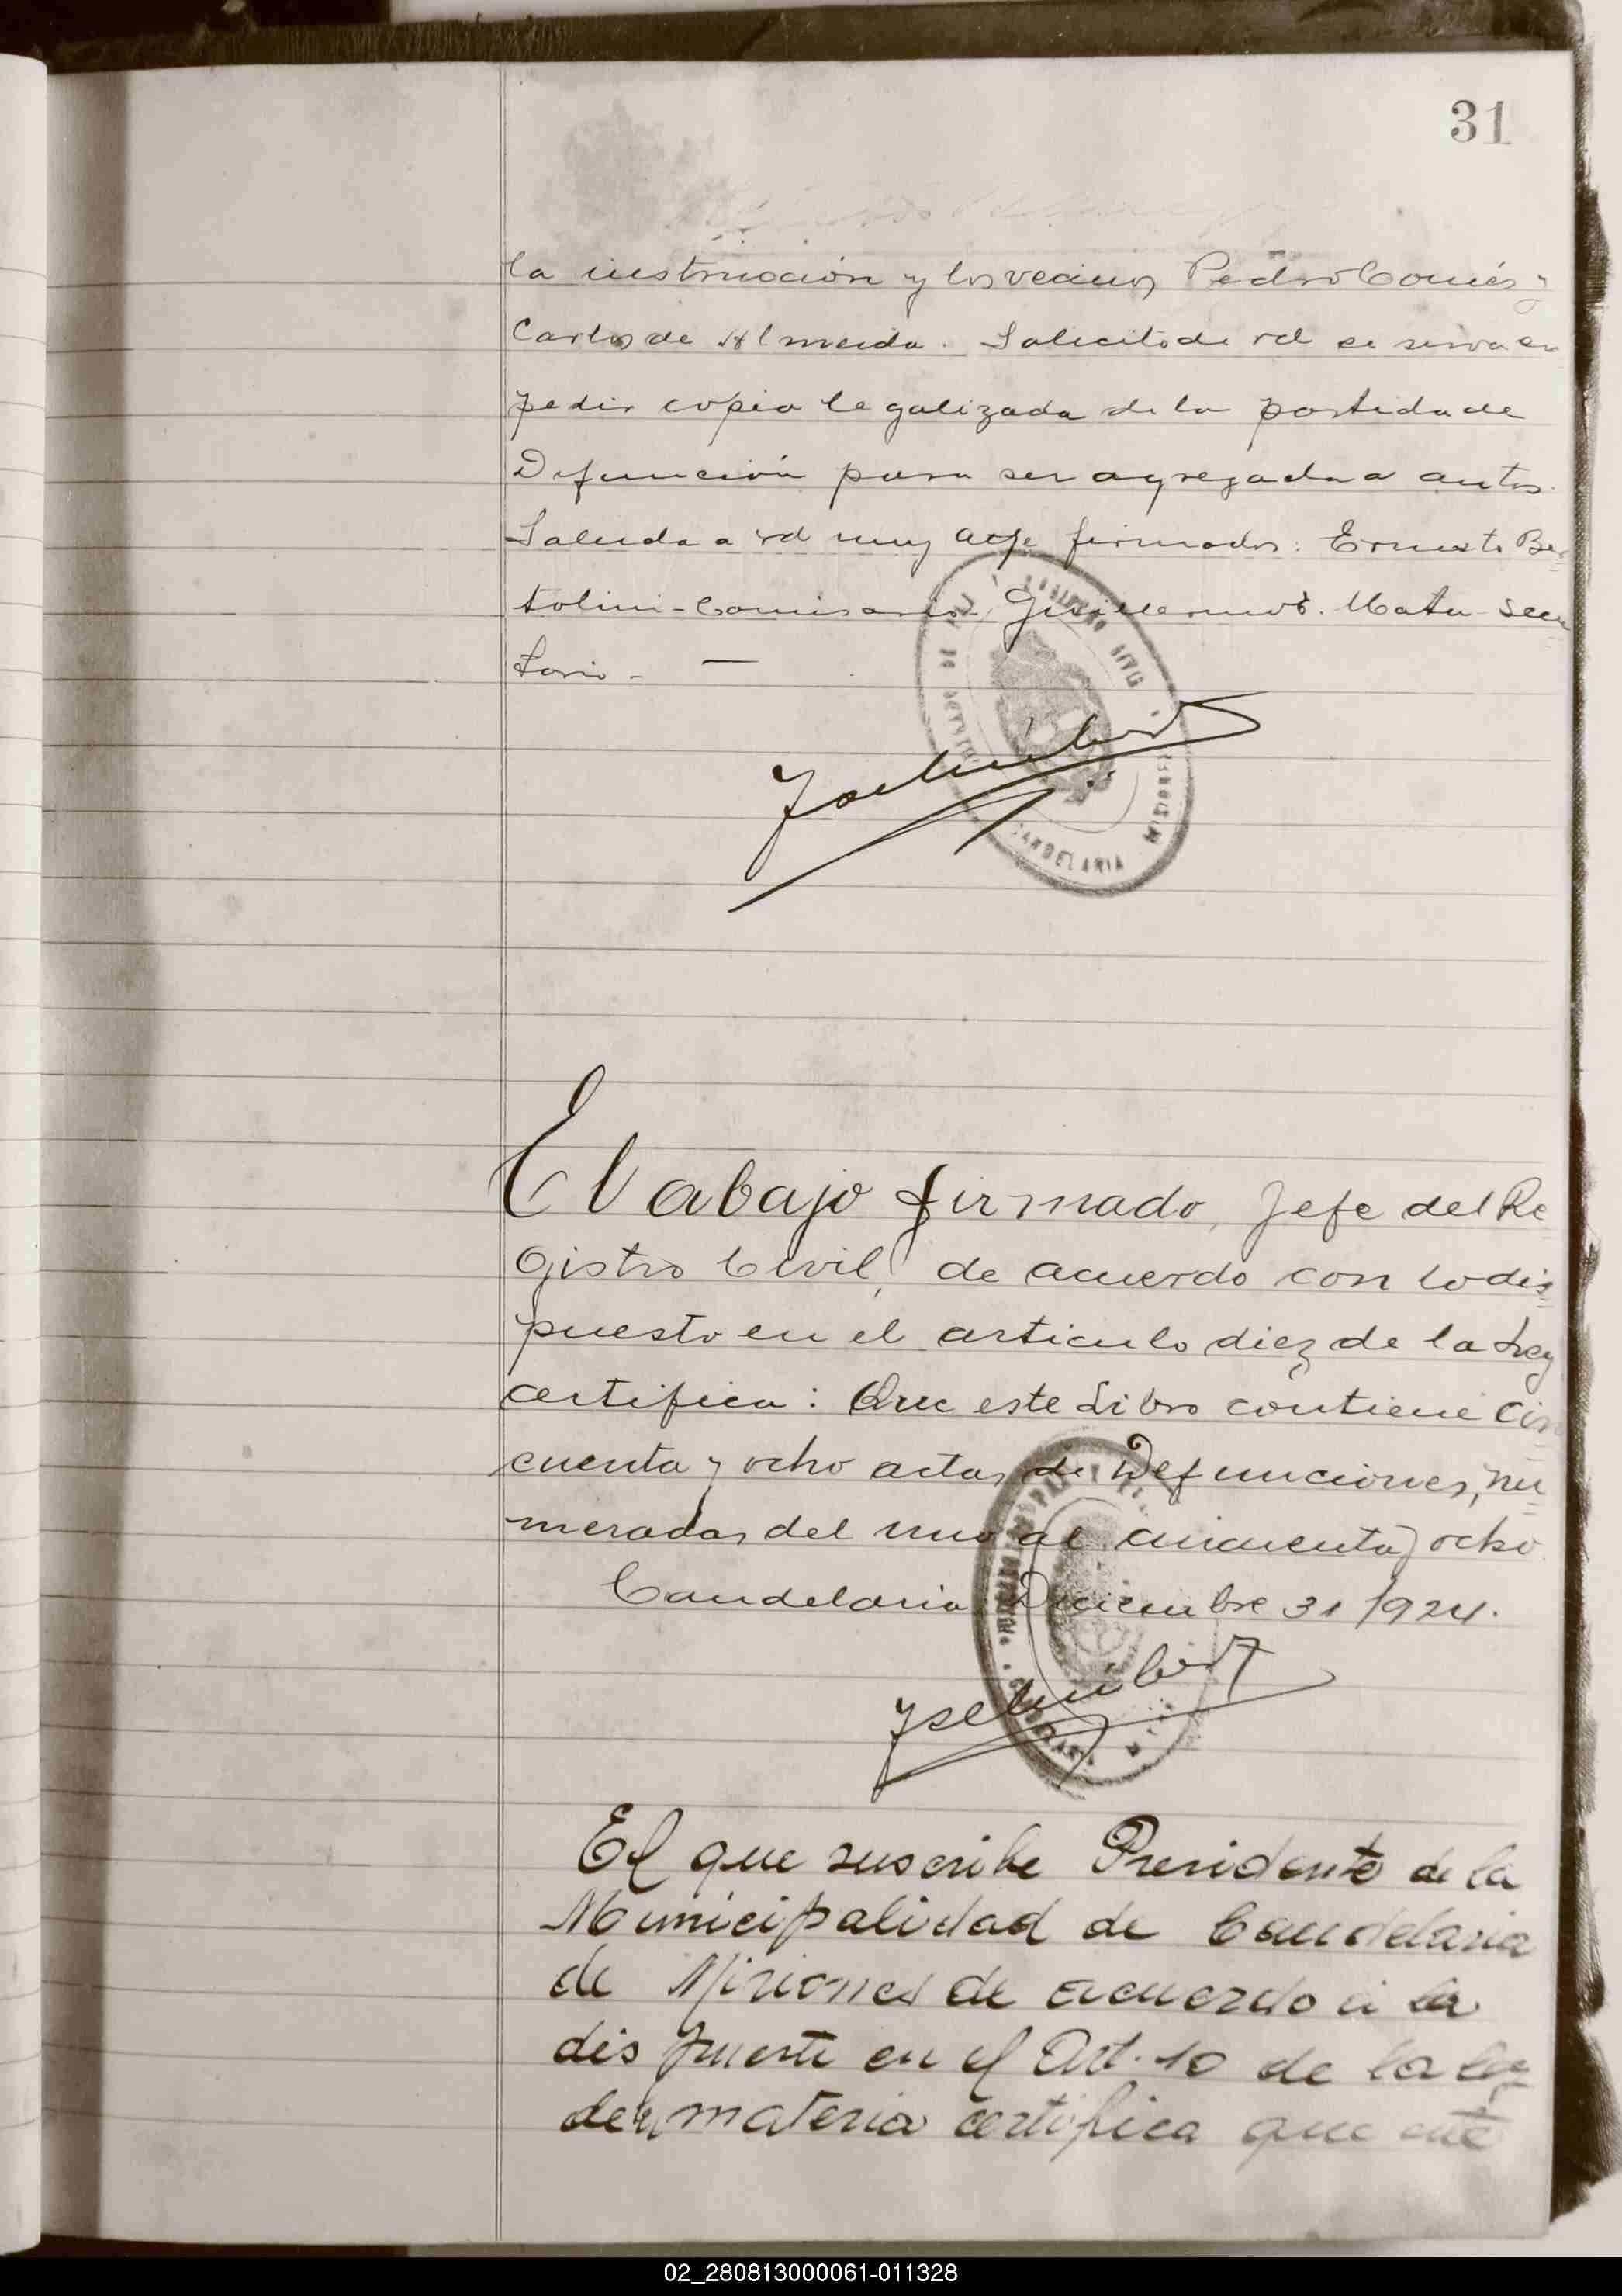 31
la instrucción y los vecinos Pedro Comés y
Carlos de Almeida. Solicito de vd se sirva ex
pedir copia legalizada de la partida de
Defunción para ser agregada a autos.
Saluda a vd muy atte firmados: Ernesto Ber
tolini - Comisario. Guillermo Mata - Secre
tario - —
REGISTRO CIVIL
CANDELARIA MISIONES
El abajo firmado, Jefe del Re
gistro Civil, de acuerdo con lo dis
puesto en el articulo diez de la Ley
certifica: Que este Libro contiene cin
cuenta y ocho actas de Defunciones, nu
meradas del uno al cincuenta y ocho
Candelaria Diciembre 31/924.
El que suscribe Presidente de la
Municipalidad de Candelaria
de Misiones de acuerdo a lo
dispuesto en el Art. 10 de la ley
de la materia certifica que este
02_280813000061-011328